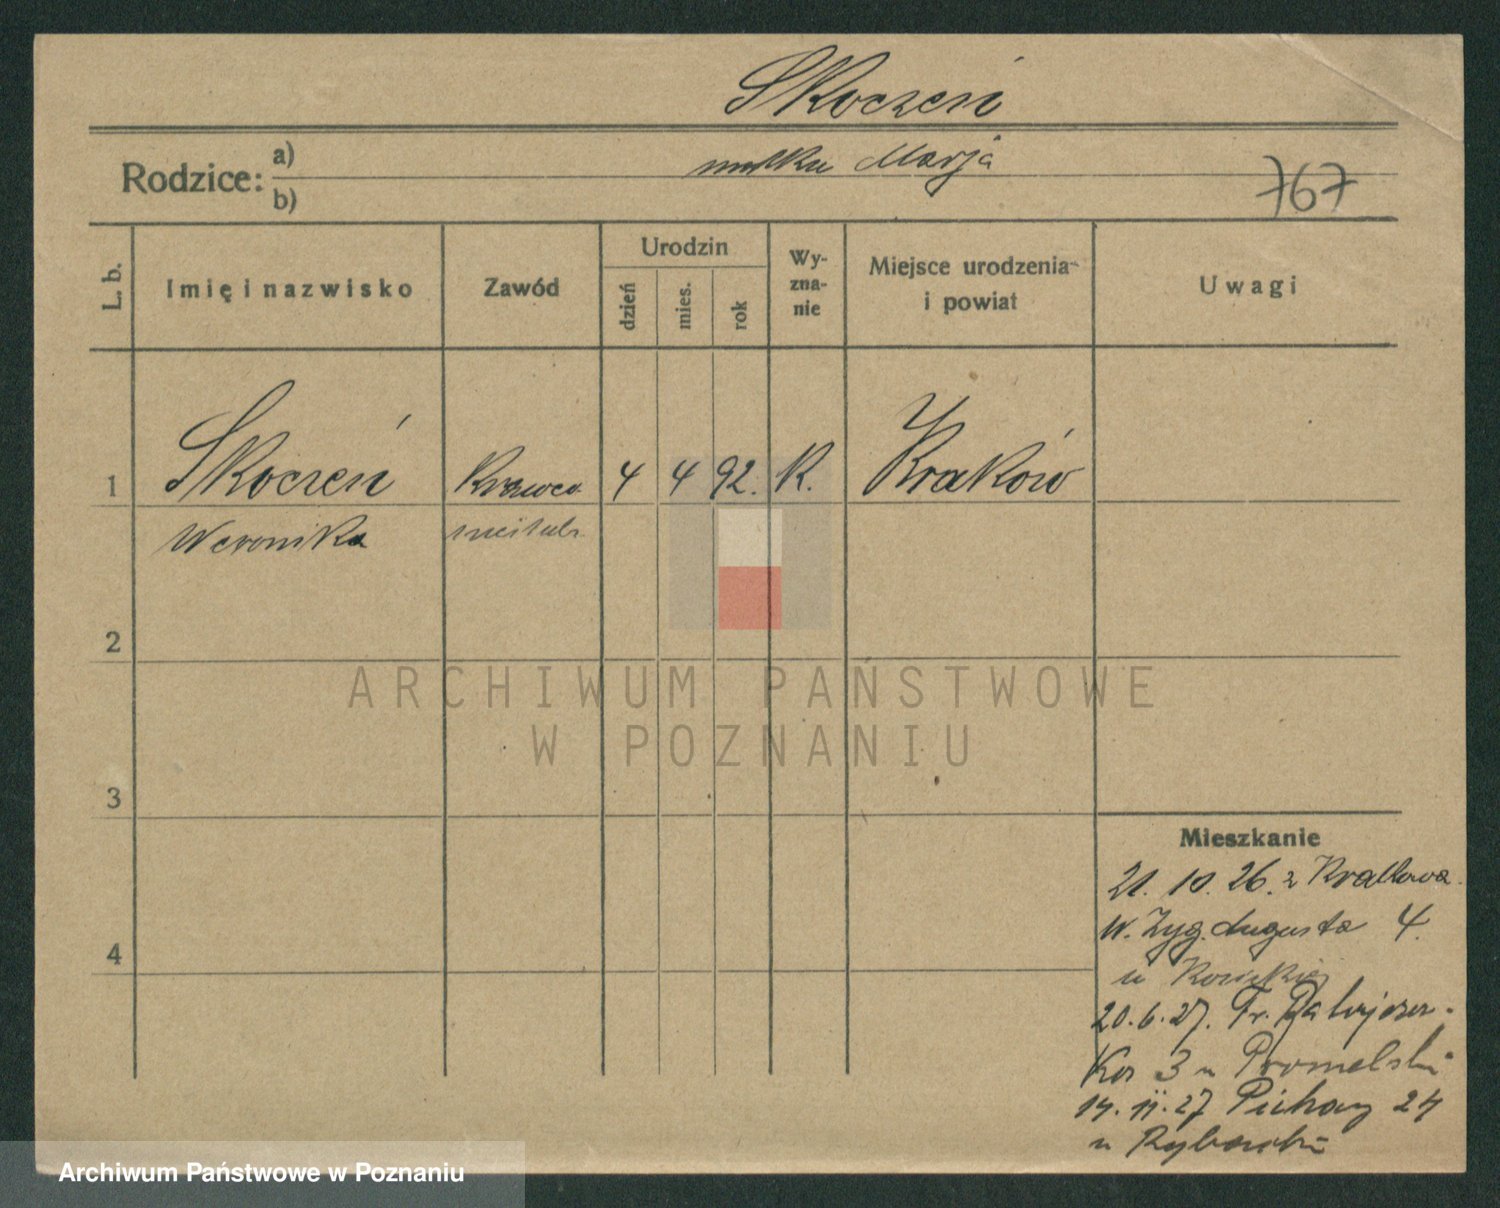 Skoczeń
Rodzice: a) matka Marja
b)
767
L. b.
Imię i nazwisko
Zawód
Urodzin
dzień
mies.
rok
Wy-
zna-
nie
Miejsce urodzenia
i powiat
Uwagi
1 Skoczeń Krawco 4 4 92. K. Kraków
Weronika
2
3
4
Mieszkanie
21. 10. 26. z Krakowa
W. Zyg. Augusta 4.
u
20. 6. 27. Fr. Ratajcza-
ka 3 u
14. 11. 27 24
u
ARCHIWUM PAŃSTWOWE
W POZNANIU
Archiwum Państwowe w Poznaniu